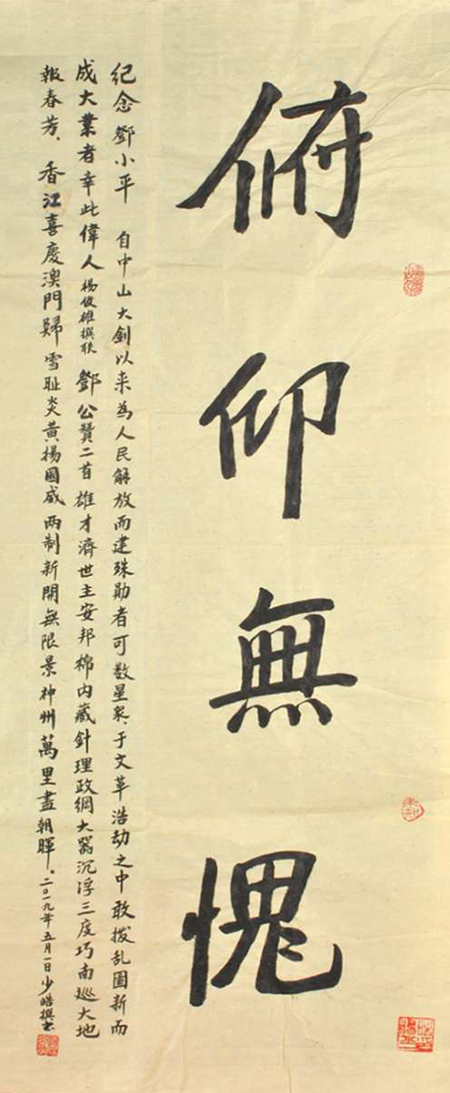 俯仰無愧
纪念鄧小平 自中山大釗以来為人民解放而建殊勛者可数星眾于文革浩劫之中敢拨乱圖新而
成大業者幸此偉人楊俊雄撰联 鄧公贊二首雄才濟世主安邦棉内藏針理政綱大器沉浮三度巧南巡大地
報春芳、香江喜慶澳門歸雪耻炎黄揚國威兩制新開無限景神州萬里盡朝暉。二〇一九年五月一日少皓撰书